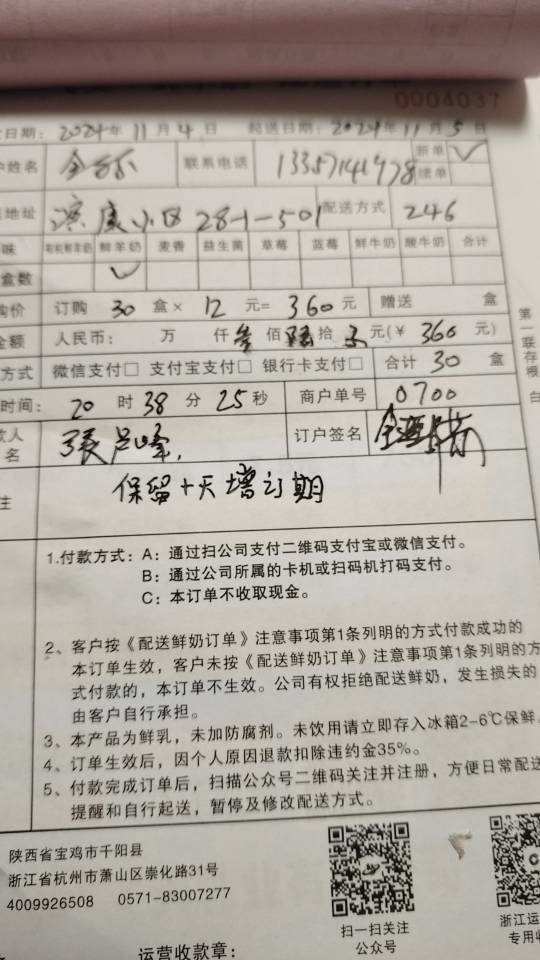 0004037
日期: 2024年11月4日 起送日期: 2024年11月5日
姓名 联系电话 13357141978 新单 ✓
续单
地址 滨康小区 28-1-501 配送方式 246
味 有机鲜羊奶 鲜羊奶 麦香 益生菌 草莓 蓝莓 鲜牛奶 酸牛奶 合计
盒数 ✓
购价 订购 30 盒× 12 元= 360 元 赠送 盒
金额 人民币: 万 仟叁佰陆拾 元(¥ 360 元)
方式 微信支付□ 支付宝支付□ 银行卡支付□ 合计 30 盒
时间: 20 时 38 分 25 秒 商户单号 0700
款人
名 張 峰 订户签名
注 保留+天增订期
第一联存根 白
1.付款方式: A: 通过扫公司支付二维码支付宝或微信支付。
B: 通过公司所属的卡机或扫码机打码支付。
C: 本订单不收取现金。
2、客户按《配送鲜奶订单》注意事项第1条列明的方式付款成功的
本订单生效，客户未按《配送鲜奶订单》注意事项第1条列明的方
式付款的，本订单不生效。公司有权拒绝配送鲜奶，发生损失的
由客户自行承担。
3、本产品为鲜乳，未加防腐剂。未饮用请立即存入冰箱2-6℃保鲜。
4、订单生效后，因个人原因退款扣除违约金35%。
5、付款完成订单后，扫描公众号二维码关注并注册，方便日常配送
提醒和自行起送，暂停及修改配送方式。
陕西省宝鸡市千阳县
浙江省杭州市萧山区崇化路31号
4009926508 0571-83007277
扫一扫关注
公众号
浙江运
专用收
运营收款章: